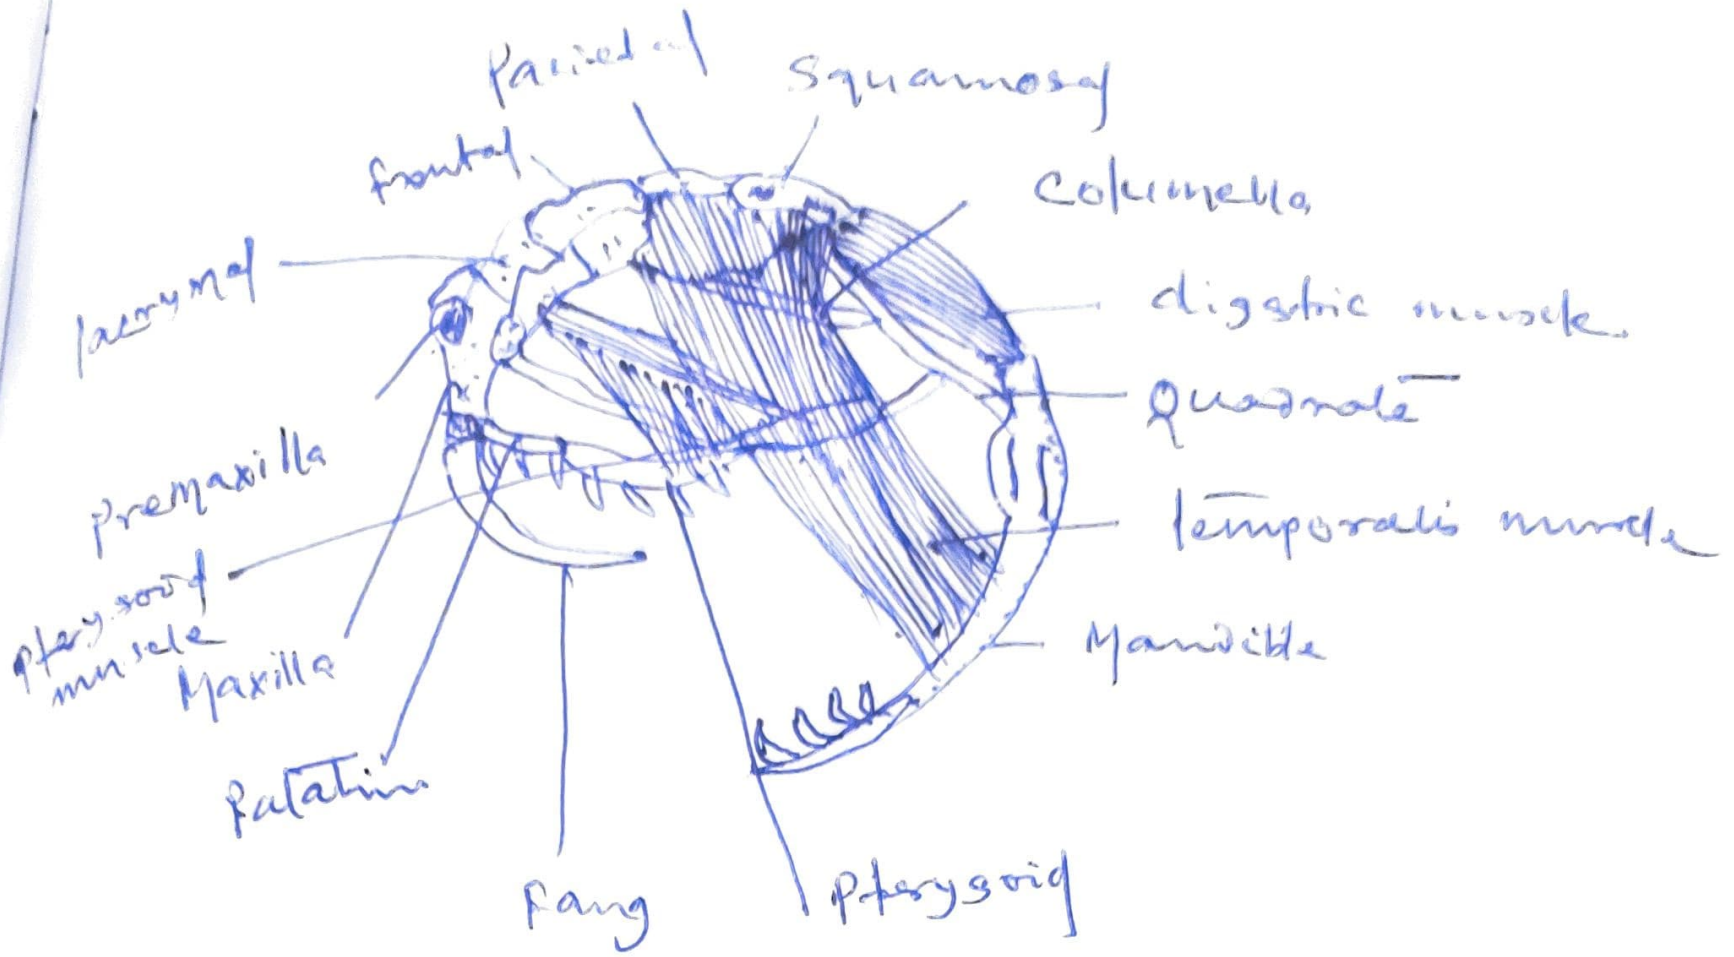 Parietal
Squamosal
frontal
Columella
lacrymal
digastric muscle
Quadrate
Premaxilla
temporalis muscle
Pterygoid
muscle
Mandible
Maxilla
Palatine
Fang
Pterygoid